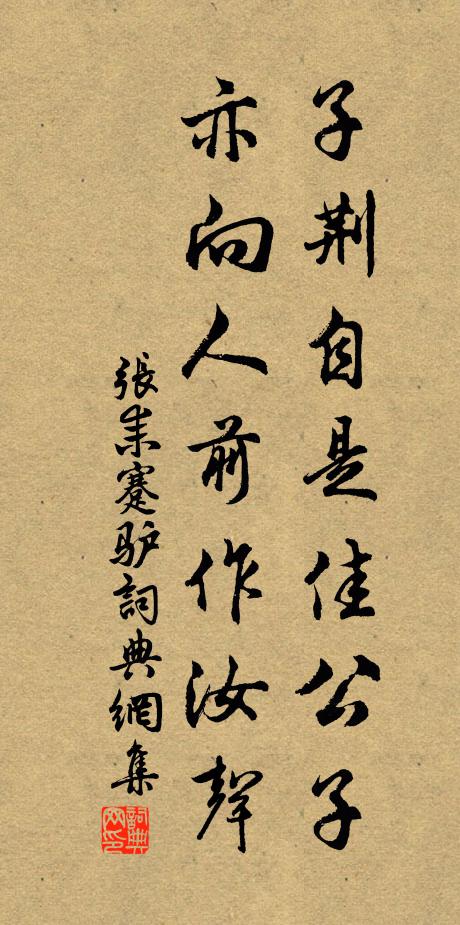 子荆自是佳公子
亦向人前作汝聲
張耒蹇驴詞典網集
詞典网印